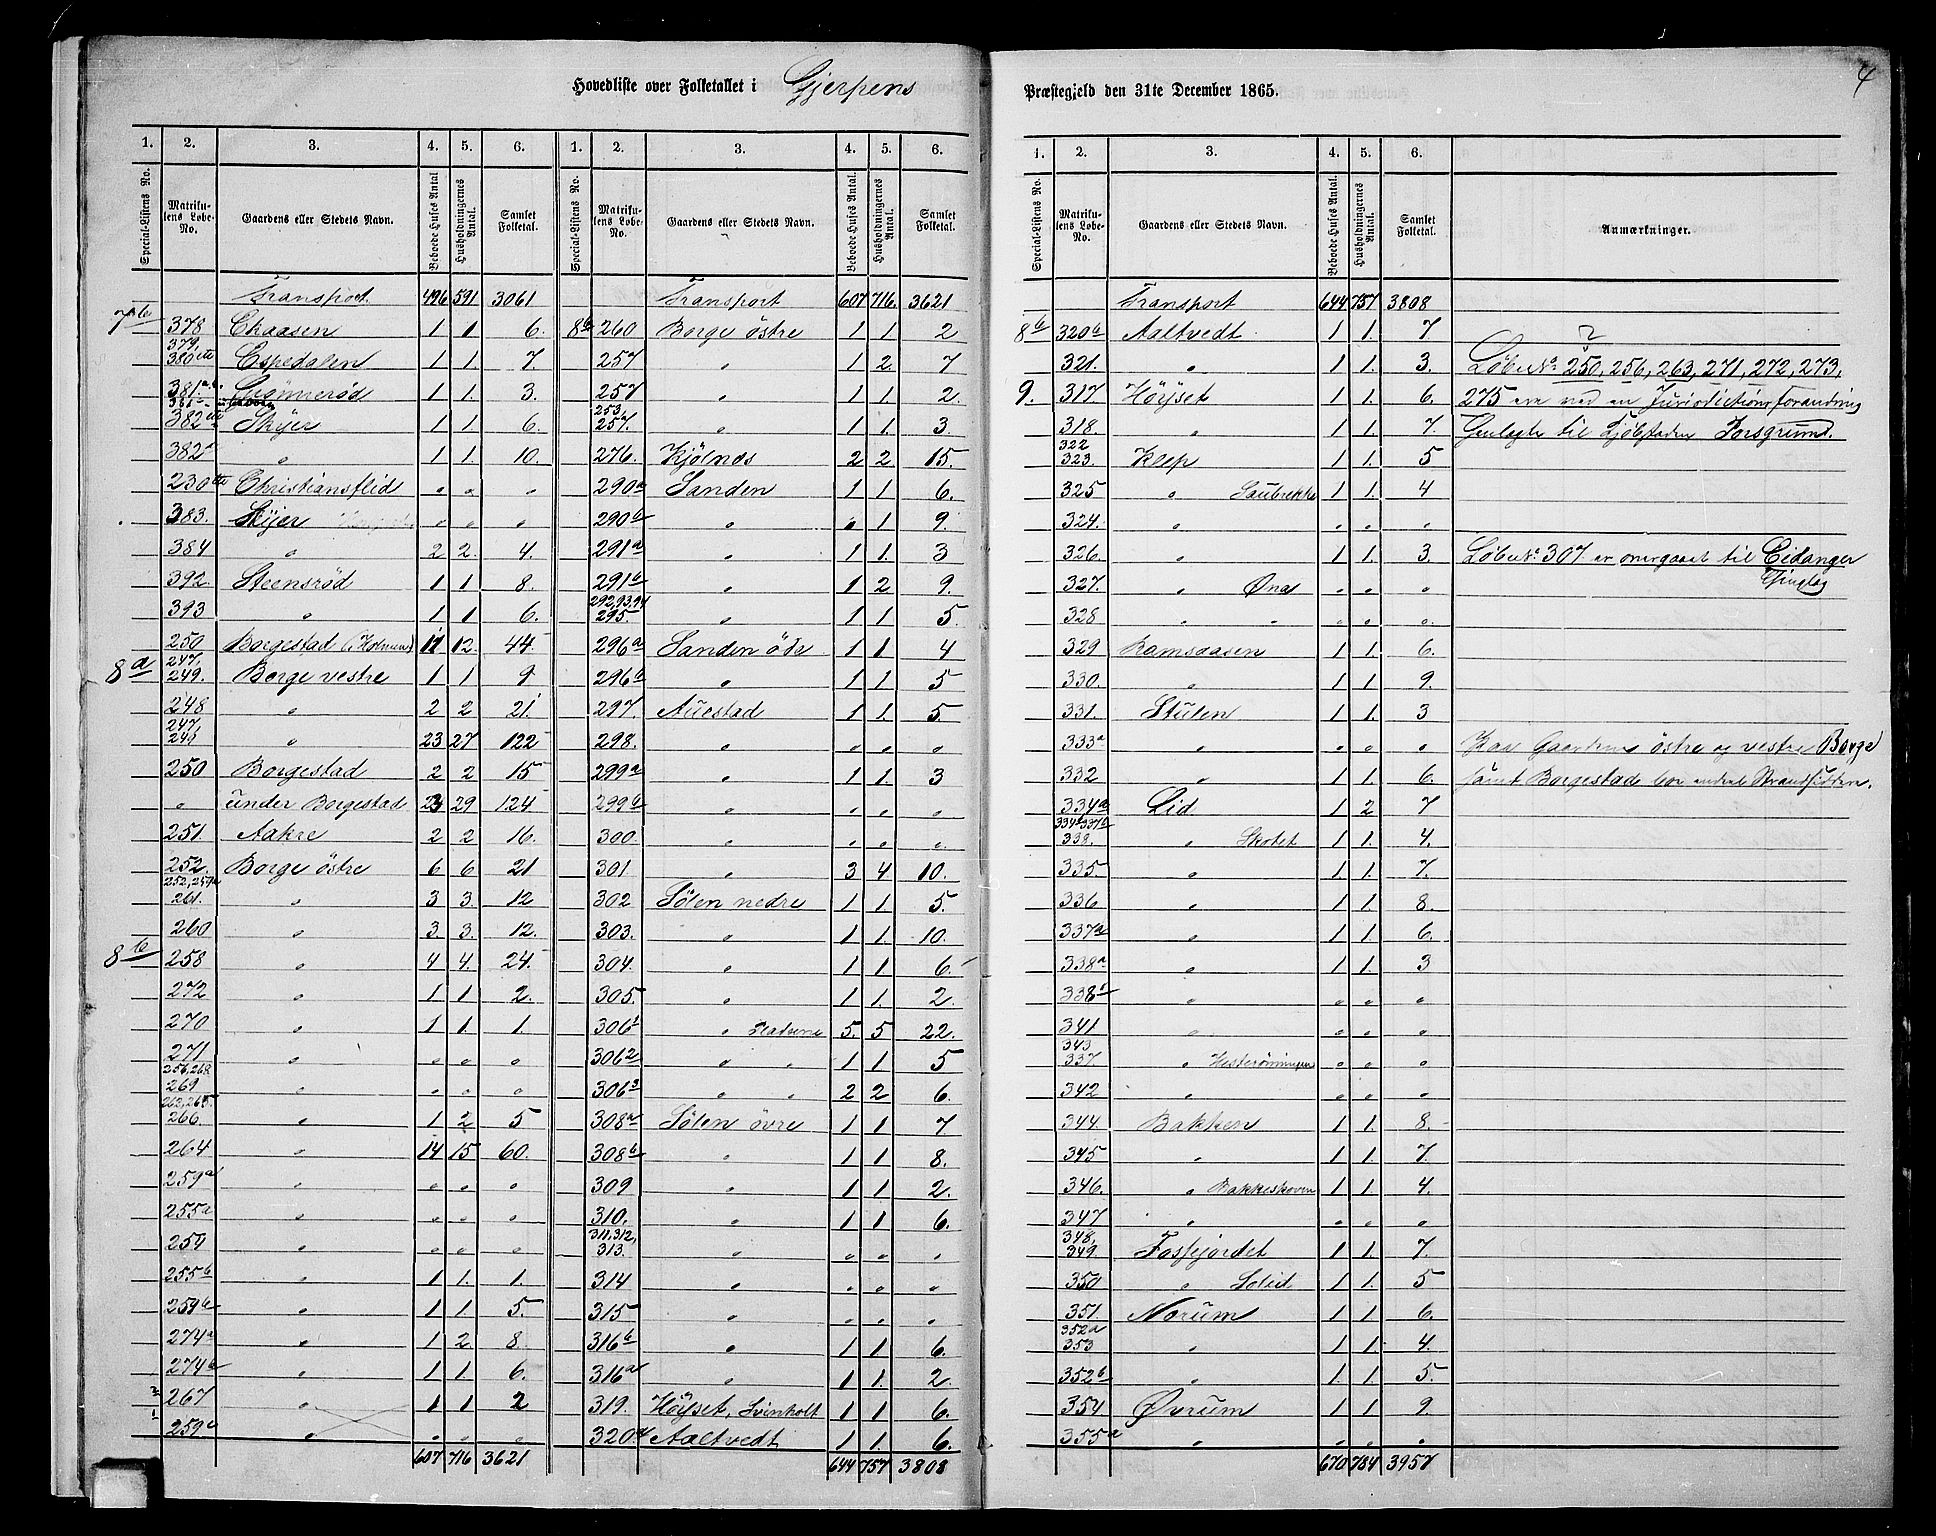 Hovedliste over Folketallet i Gjerpens
Præstegjeld den 31te December 1865.
4
1. 2. 3. 4. 5. 6.
Special-Listens No. Matrikulens Løbe-No. Gaardens eller Stedets Navn. Beboede Huses Antal Husholdningernes Antal. Samlet Folketal.
Transport 496 591 3061
7b 378 Chaasen 1 1 6.
379, 380 Espedalen 1 1. 7.
381a Grönnerød 1 1. 3.
382 Skyer 1 1. 6.
382a " 1 1. 10.
230 Christiansflid " " "
383. Skyer " " "
384 " 2 2. 4.
392. Steensrød 1 1 8.
393 " 1 1 6.
250 Borgestad (Holmen) 11 12. 44
8a 247, 249. Borge vestre 1 1 9
248 " 2 2 21.
247, 249 " 23 27 122
250 Borgestad 2 2 15
" under Borgestad 24 29 124
251. Aakre 2 2 16.
252. Borge östre 6 6 21
252, 259a 261. " 3 3. 12
260 " 3. 3. 12.
8b 258 " 4 4. 24.
272 " 1 1 2.
270 " 1 1. 1.
271 " " " "
256, 268 269 " " " "
262, 265 266. " 1 2 5
264 " 14 15 60.
259a " " " "
255a " " " "
254 " " " "
255b " 1 1. 1.
259b " 1 1. 5.
274a " 1 2 8.
274b " 1 1. 6.
267 " 1 1 2
259c " " " "
607 716 3621
1. 2. 3. 4. 5. 6.
Special-Listens No. Matrikulens Løbe-No. Gaardens eller Stedets Navn. Beboede Huses Antal. Husholdningernes Antal. Samlet Folketal.
Transport 607 716. 3621
8b 260 Borge östre 1 1 2
257 " 1 2. 7
257 " 1 1 2.
253, 257. " 1 1. 3.
276. Kjölnæs 2 2 15.
290a Sanden 1 1 6.
290b " " 1 9.
291a " 1 1. 3
291b " 1 2 9.
292, 93, 94 295. " 1 1 5
296a Sanden öde 1 1 4
296b " 1 1. 5
297. Auestad 1 1. 5
298. " " " "
299a " 1 1. 3
299b " " " "
300. " " " "
301 " 3 4 10.
302 Sölen nedre 1 1 5.
303. " 1 1. 10.
304. " 1 1 6.
305. " 1 1. 2.
306¹ " 5. 5 22.
306² " " 1 1 5
306³ " " 2 2 6.
308a Sölen övre 1 1 7
308b " 1 1 8.
309 " 1 1 2.
310. " 1 1 6.
311, 312, 313. " " " "
314 " " " "
315 " " " "
316b " 1 1 6.
316a " 1 1. 2.
319. Höyset, Svinholt 1 1 6.
320a Aaltvedt 1 1. 6.
644 757 3808
1. 2. 3. 4. 5. 6.
Special-Listens No. Matrikulens Løbe-No. Gaardens eller Stedets Navn. Beboede Huses Antal. Husholdningernes Antal. Samlet Folketal. Anmærkninger.
Transport 644 757 3808
8b 320b Aaltvedt 1 1. 7.
321. " 1 1. 3. Löbe No. 250, 256, 263, 271, 272, 273,
9. 317 Höyset 1 1. 6. 275 ere ved en Jurisdictionsforandring
318. " 1 1. 7. henlagte til Kjöbstaden Porsgrund.
322 323. Kleep 1 1. 5
325 " 1 1. 4
324. " " " "
326. " 1 1. 3. Löbe No. 307 er overgaaet til Eidanger Thinglag
327. " Ønæs " " "
328 " " " " "
329 Ramsaasen 1 1. 6.
330. " 1 1. 9.
331. Stulen 1 1. 3
333a " " " " Paa Gaardene östre og vestre Borge
332 " 1 1. 6. samt Borgestad boe endeel Strandsiddere.
334a Lid 1 2 7
334b 337b 338. " Skotet 1 1. 4.
335. " 1 1. 7.
336 " 1 1. 8.
337a " 1 1. 6.
338a " 1 1. 3
338b " " " "
341 " " " "
343 337. " Hesterönningen " " "
342 " " " "
344. Bakken 1 1. 8.
345 " 1 1. 7.
346. " Bakkeskoven 1 1. 4.
347 " " " "
348, 349. Fosfjordet 1 1. 7.
350 " Solid 1 1. 5
351. Norum 1 1 6.
352a 353 " 1 1 4.
352b " 1 1. 5.
354 Øvrum 1 1 9.
355a " " " "
670 784 3957